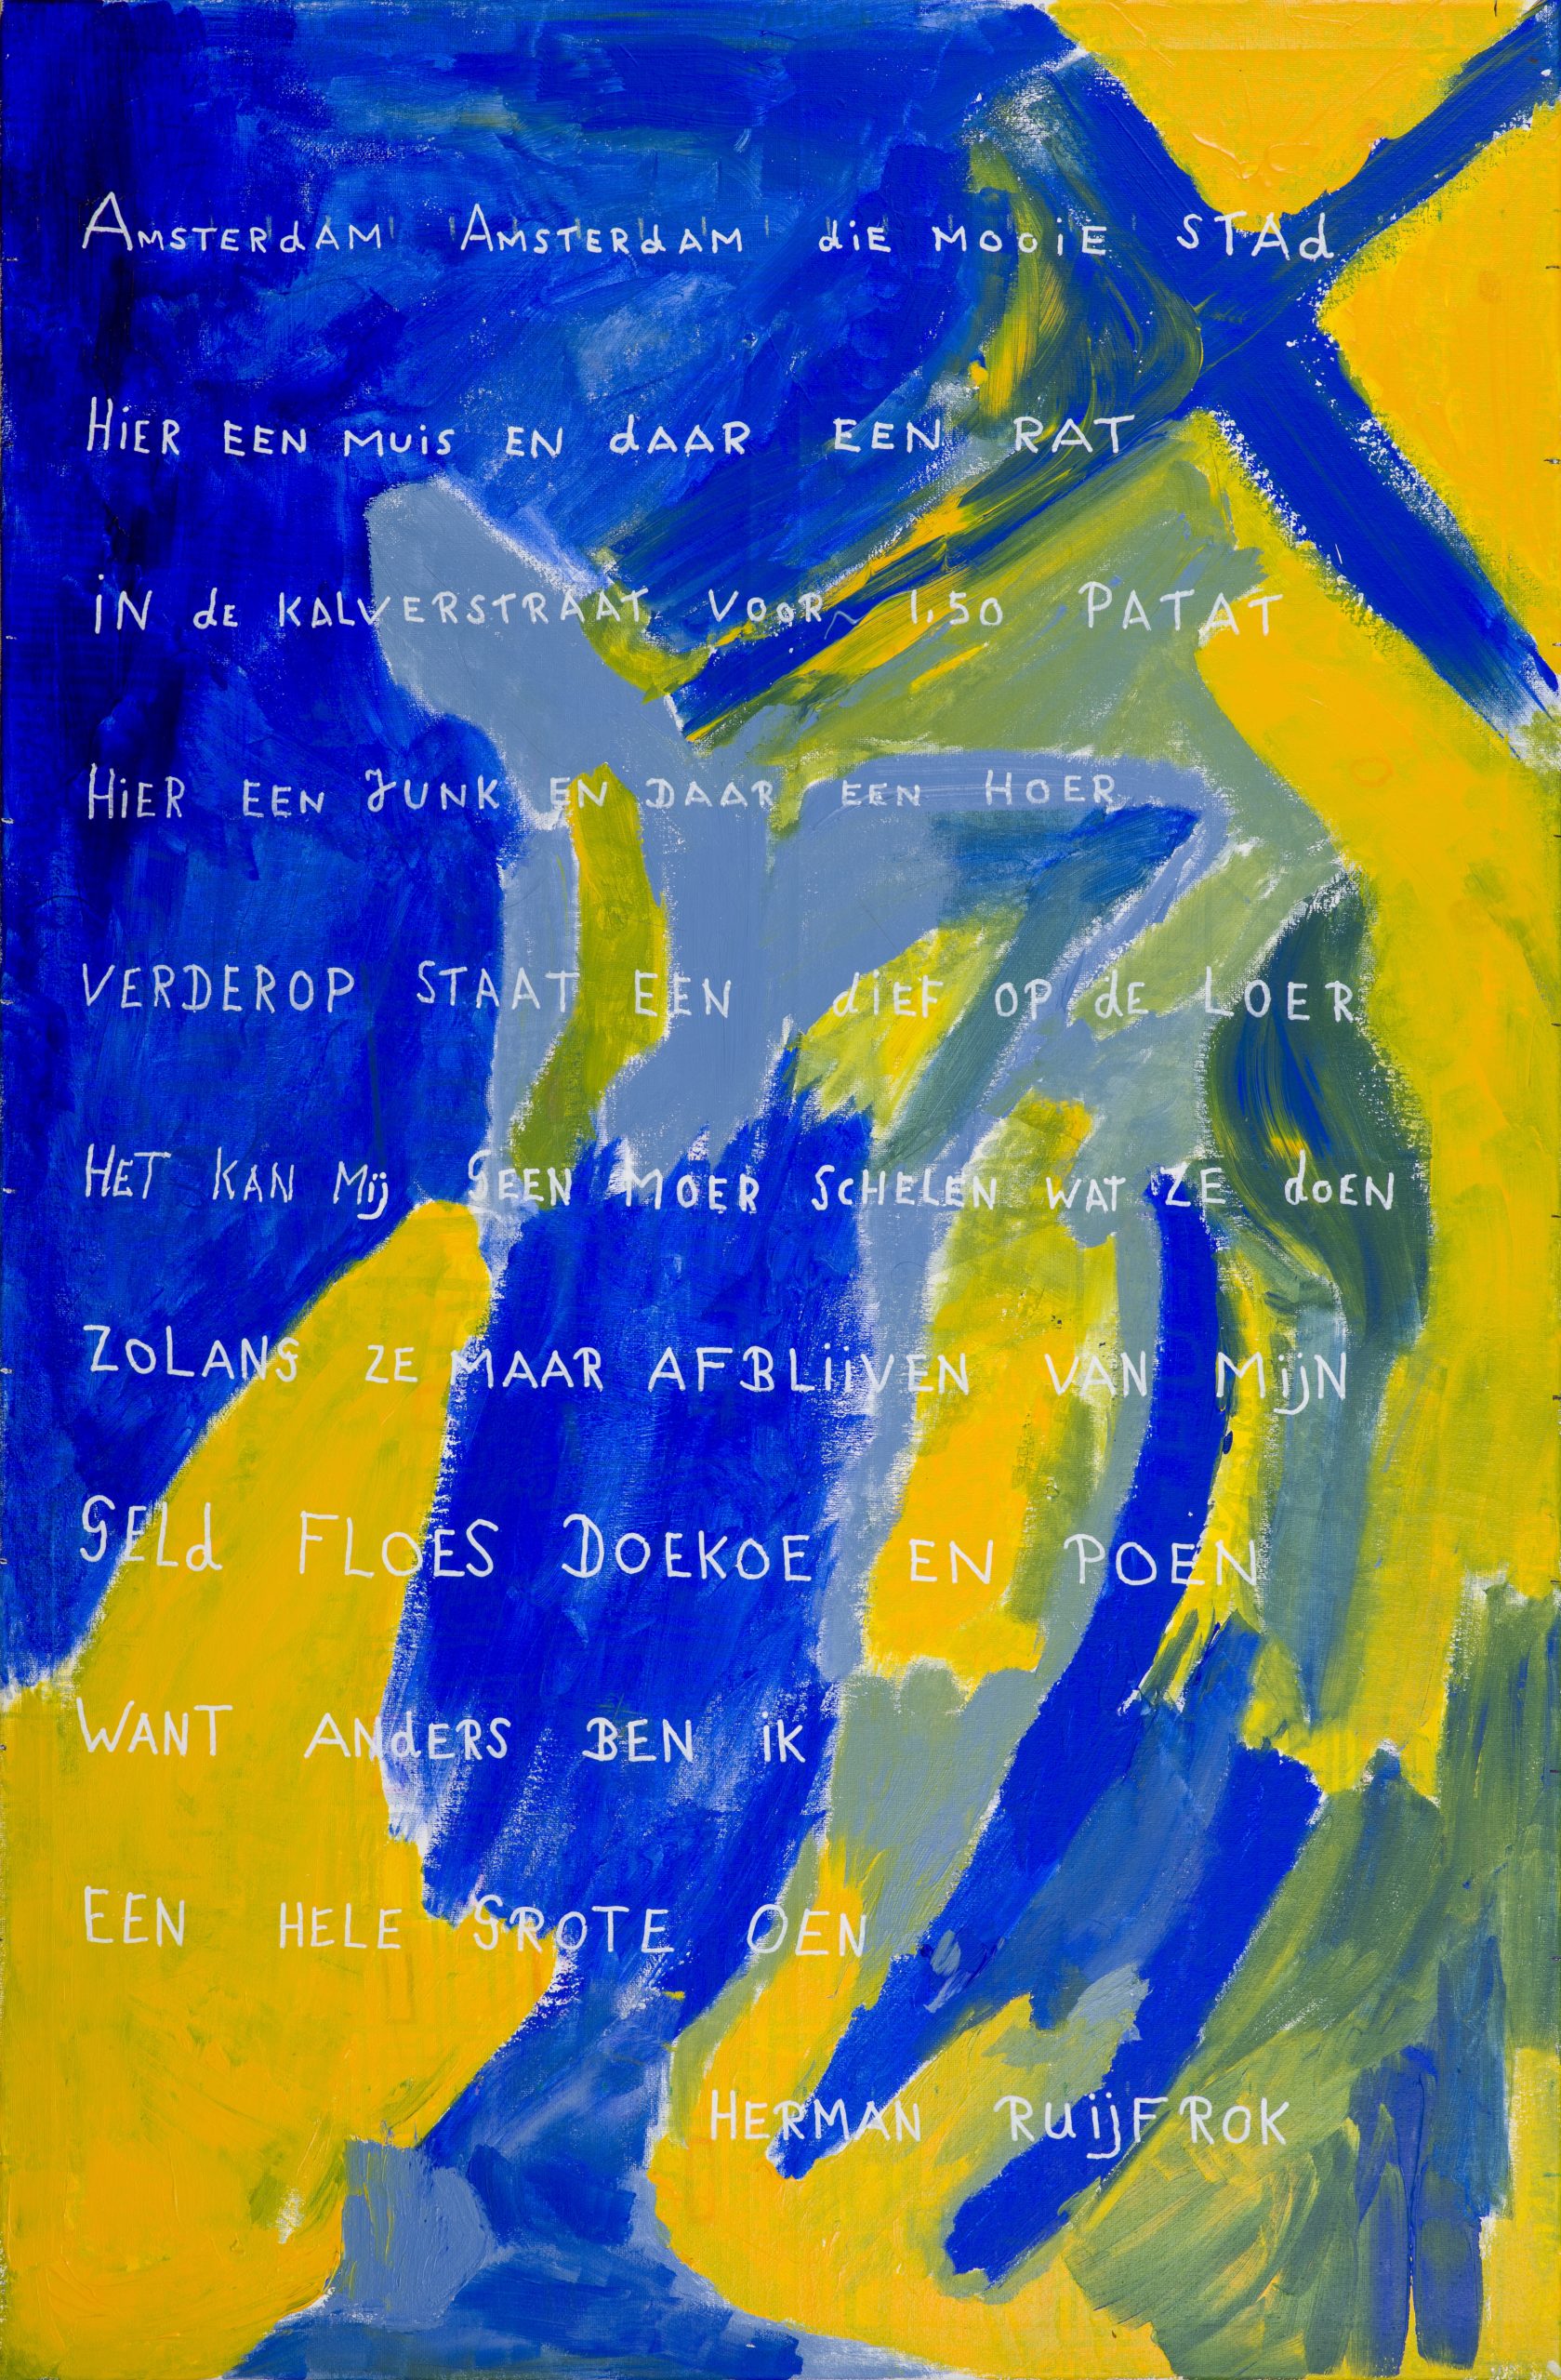 AMSTERdAM AMSTERdAM diE MOOiE STAd
HiER EEN MUiS EN dAAR EEN RAT
iN dE KALVERSTRAAT VOOR 1,50 PATAT
HiER EEN JUNK EN DAAR EEN HOER
VERDEROP STAAT EEN diEF OP dE LOER
HET KAN Mij GEEN MOER SCHELEN WAT ZE dOEN
ZOLANG ZE MAAR AFBLijVEN VAN MijN
GELd FLOES DOEKOE EN POEN
WANT ANdERS BEN iK
EEN HELE GROTE OEN
HERMAN RUijFROK